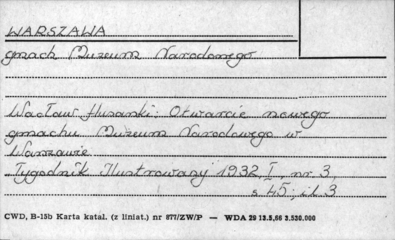 WARSZAWA
gmach Muzeum Narodowego
Wacław Husarski: Otwarcie nowego
gmachu Muzeum Narodowego w
Warszawie
Tygodnik Ilustrowany 1932, I, nr. 3,
s 45; il 3
CWD, B-15b Karta katal. (z liniat.) nr 877/ZW/P — WDA 29 13.5.66 3.530.000